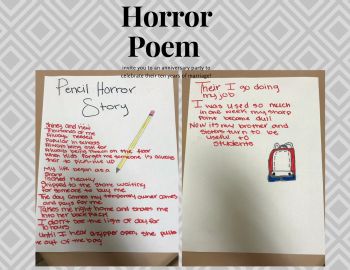 Horror
Poem
invite you to an anniversary party to
celebrate their ten years of marriage!
Pencil Horror
Story
Shiney and new
Thousands of me
Always needed
Popular in schools
Always being thrown on the floor
when kids forget me someone is always
their to pick me up
My life began as a
Packed neatly
Shipped to the store waiting
for someone to buy me
The day comes my temporary owner comes
and pays for me
Takes me right home and shoves me
into her back pack
I don't see the light of day for
10 hours
Until I hear a zipper open, she pulls
me out of the bag
Their I go doing
my job
I was used so much
in one week my sharp
point became dull
Now it's my brother and
sisters turn to be
useful to
students